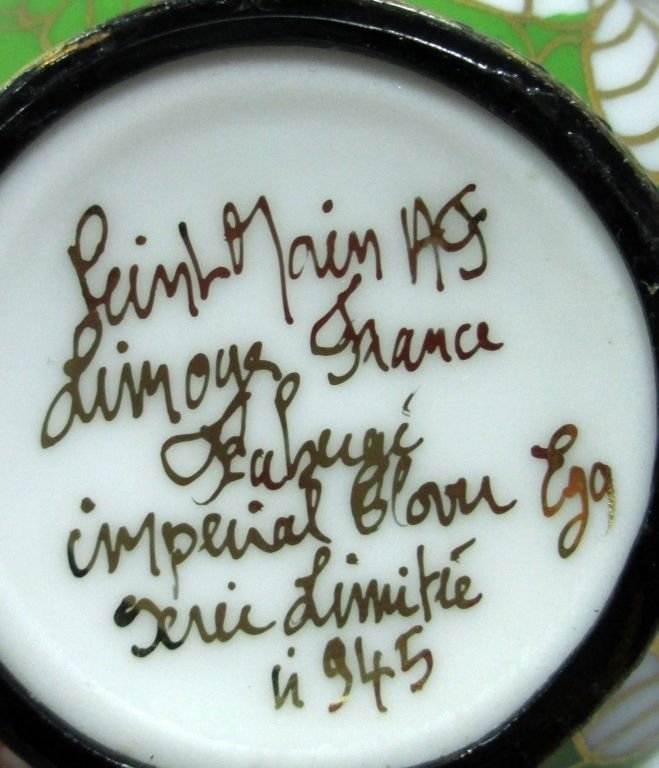 Peint Main AF
Limoges France
Fabergé
imperial Clover Egg
serie Limitée
n 945